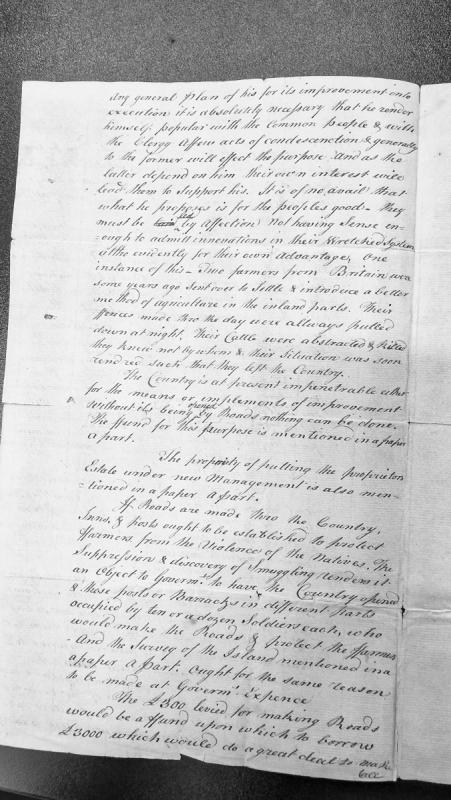 any general plan of his for its improvement into
execution it is absolutely necessary that he render
himself popular with the Common People & with
the Clergy A few acts of condescention & generosity
to the former will effect the purpose And as the
latter depend on him their own interest will
lead them to Support his. It is of no avail that
what he proposes is for the peoples good - they
must be led by Affection not having Sense en-
=ough to admit innovations in their Wretched System
altho evidently for their own advantage, One
instance of this - Two farmers from Britain were
some years ago Sent over to Settle & introduce a better
method of agriculture in the inland parts. Their
ffences made thro the day were allways pulled
down at night. Their Cattle were abstracted & killed
they knew not by whom & their Situation was soon
rendred such that they left the Country.
The Country is at present impenetrable either
for the means or implements of improvement
Without its being opened by Roads nothing can be done.
The ffund for this purpose is mentioned in a paper
a part.
The propriety of putting the proprietors
Estate under new Management is also men-
=tioned in a paper a part.
If Roads are made thro the Country,
Inns, & posts ought to be established to protect
ffarmers from the Violence of the Natives. The
Suppression & discovery of Smuggling renders it
an Object to Governmt. to have the Country opened
& those posts or Barracks in different parts
occupied by ten or a dozen Soldiers each, who
would make the Roads & protect the ffarmers
- And the Survey of the Island mentioned in a
a paper A part, ought for the same reason
to be made at Governt. Expence
The £300 levied for making Roads
would be a ffund upon which to borrow
£3000 which would do a great deal to make